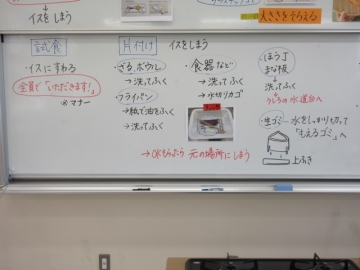 →イスをしまう
大きさをそろえる
試食
・イスにすわる
全員で「いただきます!」
※マナー
片付け イスをしまう
・ざる、ボウル
→洗ってふく
・フライパン
→紙で油をふく
→洗ってふく
・食器など
→洗ってふく
→水切りカゴ
→OKもらったら 元の場所にしまう
・ほう丁
まな板
→洗ってふく
→うしろの水道台へ
・生ゴミ→水をしっかり切って
「もえるゴミ」へ
上ぶき